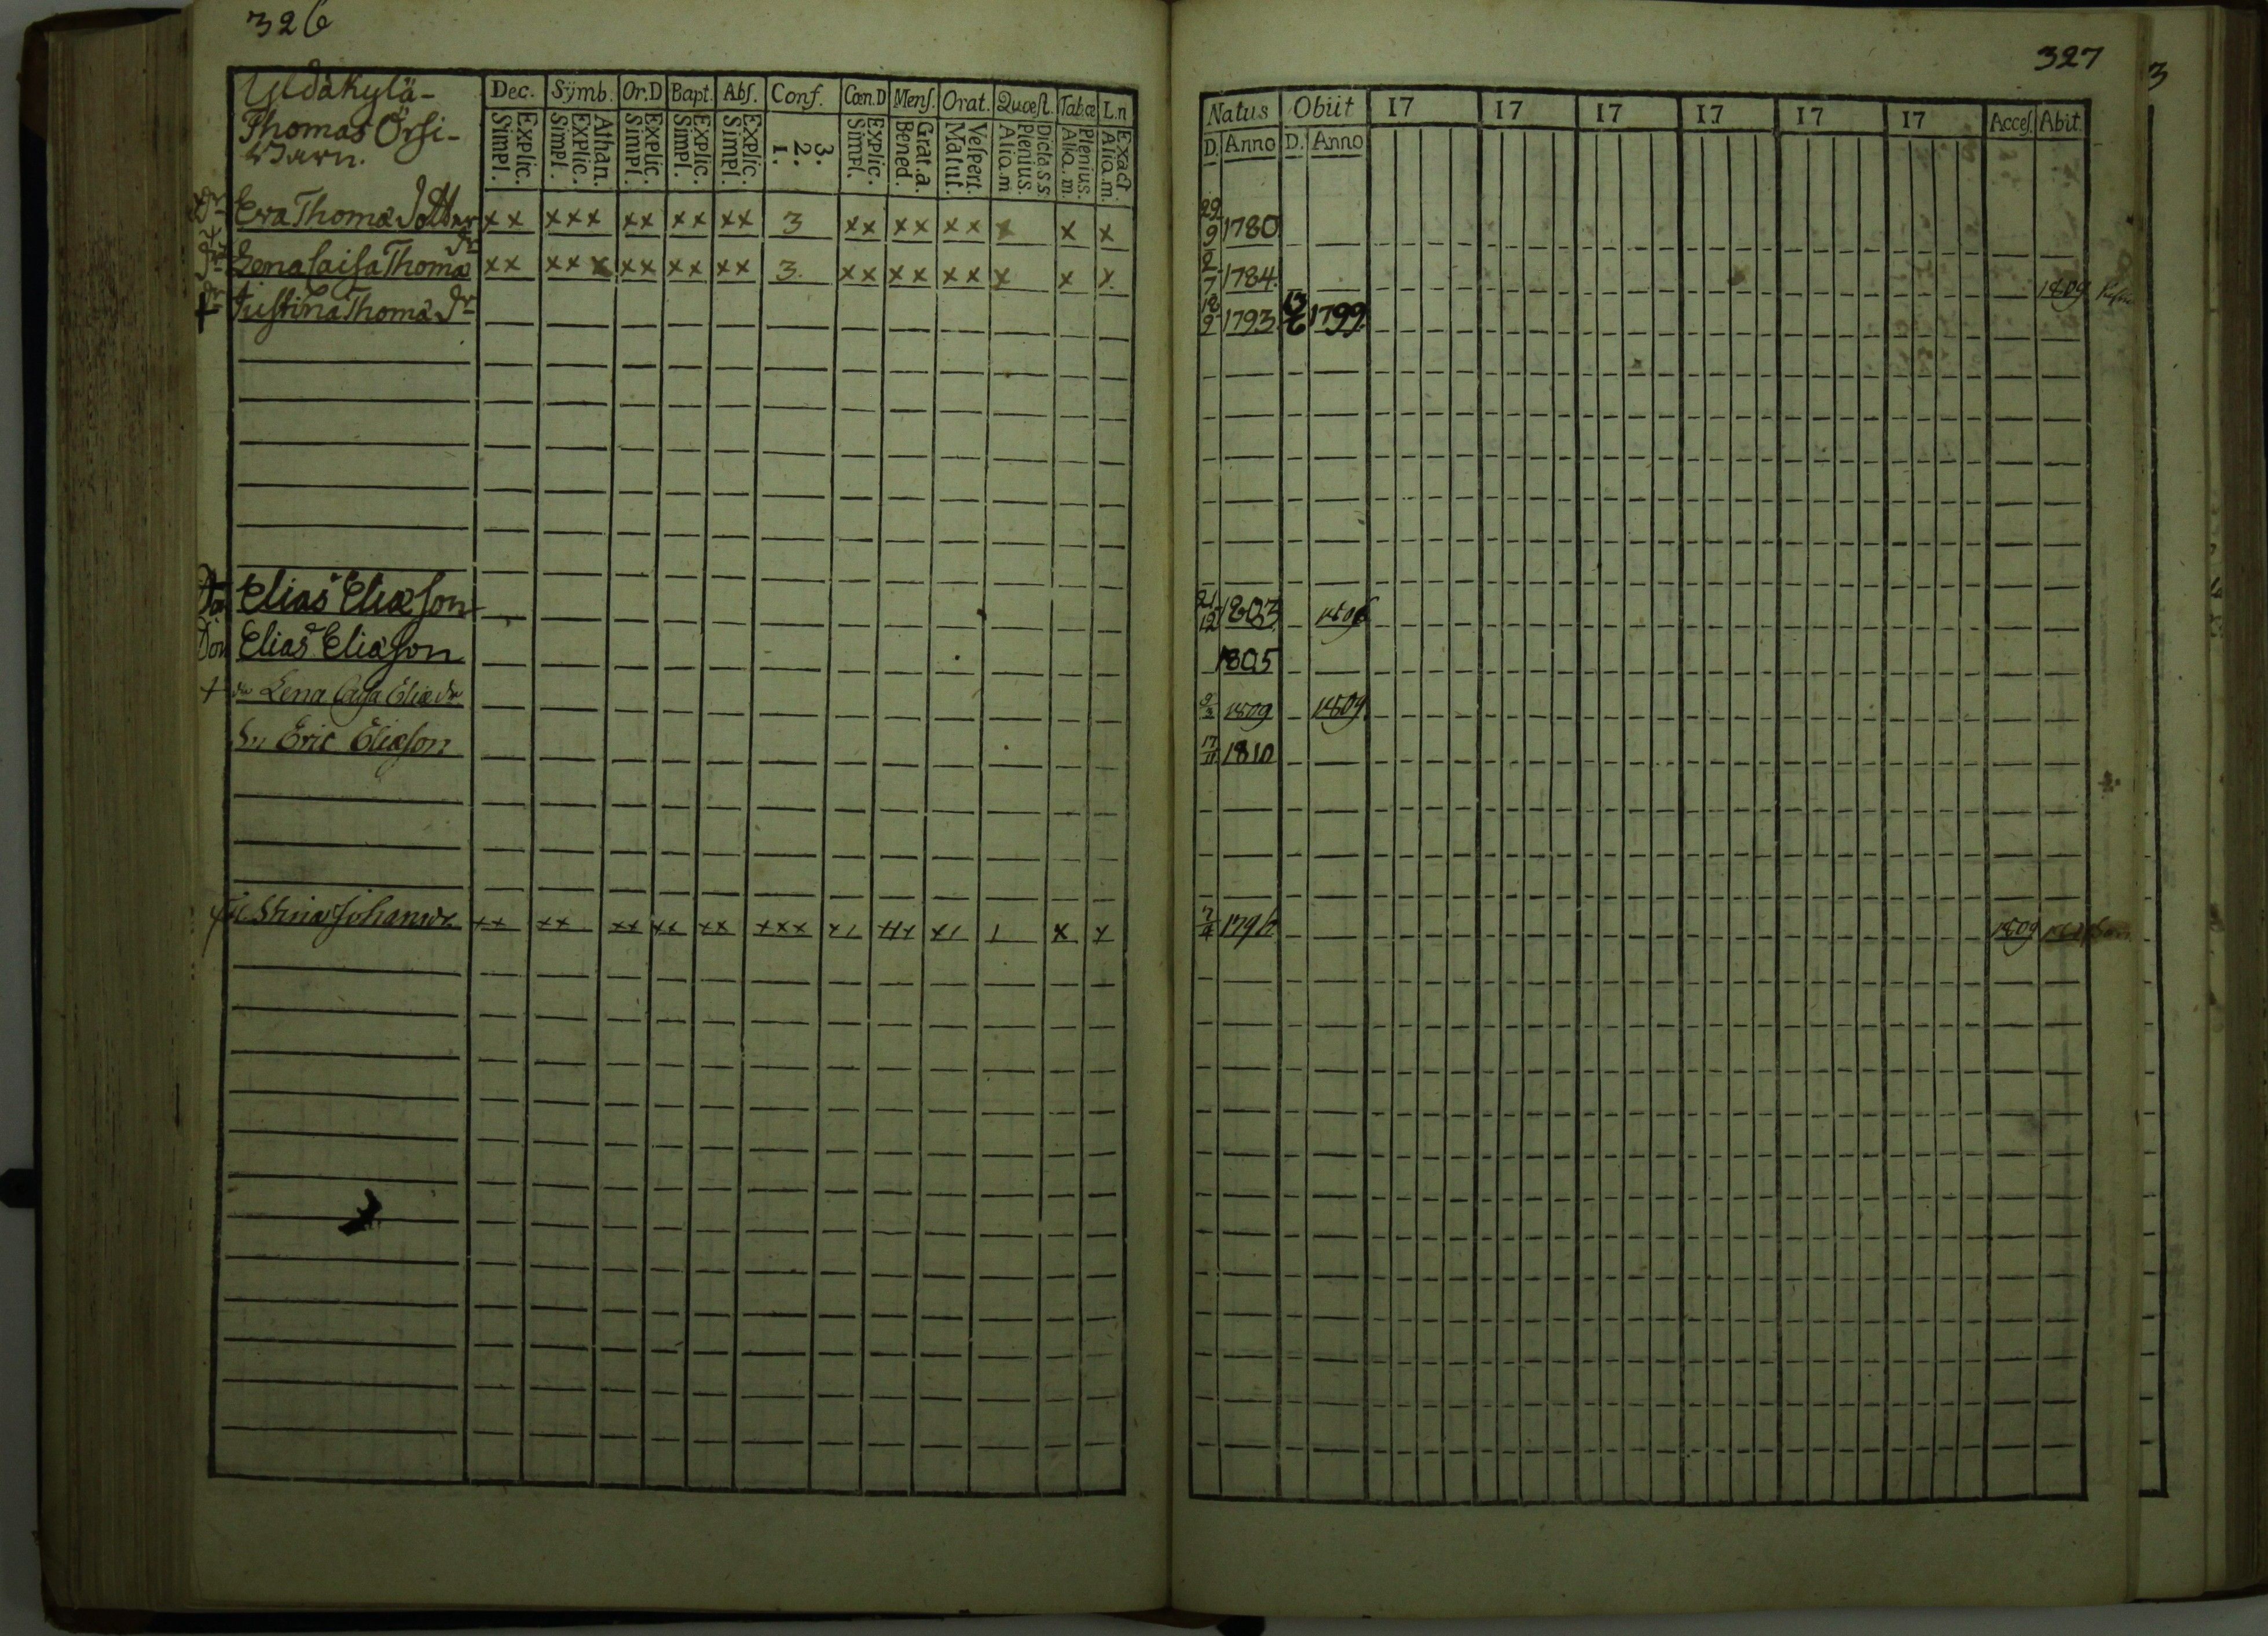 326
Uldakylä-
Thomas Örsi-
Warn.
Dec. Symb. Or.D Bapt. Abſ. Conf. Cœn.D Menſ. Orat. Quœſt. Tab.œ L.n
Explic. Simpl. Athan. Explic. Simpl. Explic. Simpl. Explic. Simpl. Explic. Simpl. 3. 2. 1. Explic. Simpl. Grat.a. Bened. Veſpert. Matut. Dicta.s.s. Plenius. Alia.m Plenius. Alia.m. Exact Alia.m.
Dr Eva Thomæ Dotter xx xxx xx xx xx 3 xx xx xx x x x
Dr Lena Caisa Thomæ Dr xx xxx xx xx xx 3. xx xx xx x x x
Dr Justina Thomæ Dr
Son Elias Eliæson
Son Elias Eliæson
+ dr Lena Cajsa Eliæ dr
Sn Eric Eliæson
Stina Johansdr xx xx xx xx xx xxx x1 x1 1 x x
327
Natus Obiit 17 17 17 17 17 17 Acceſ. Abit.
D. Anno D. Anno
29/9 1780
2/7 1784. 1809
18/9 1793. 13/6 1799.
21/12 1803 1806
1805
1809 1809
17/11 1810
7/4 1796 1809
3